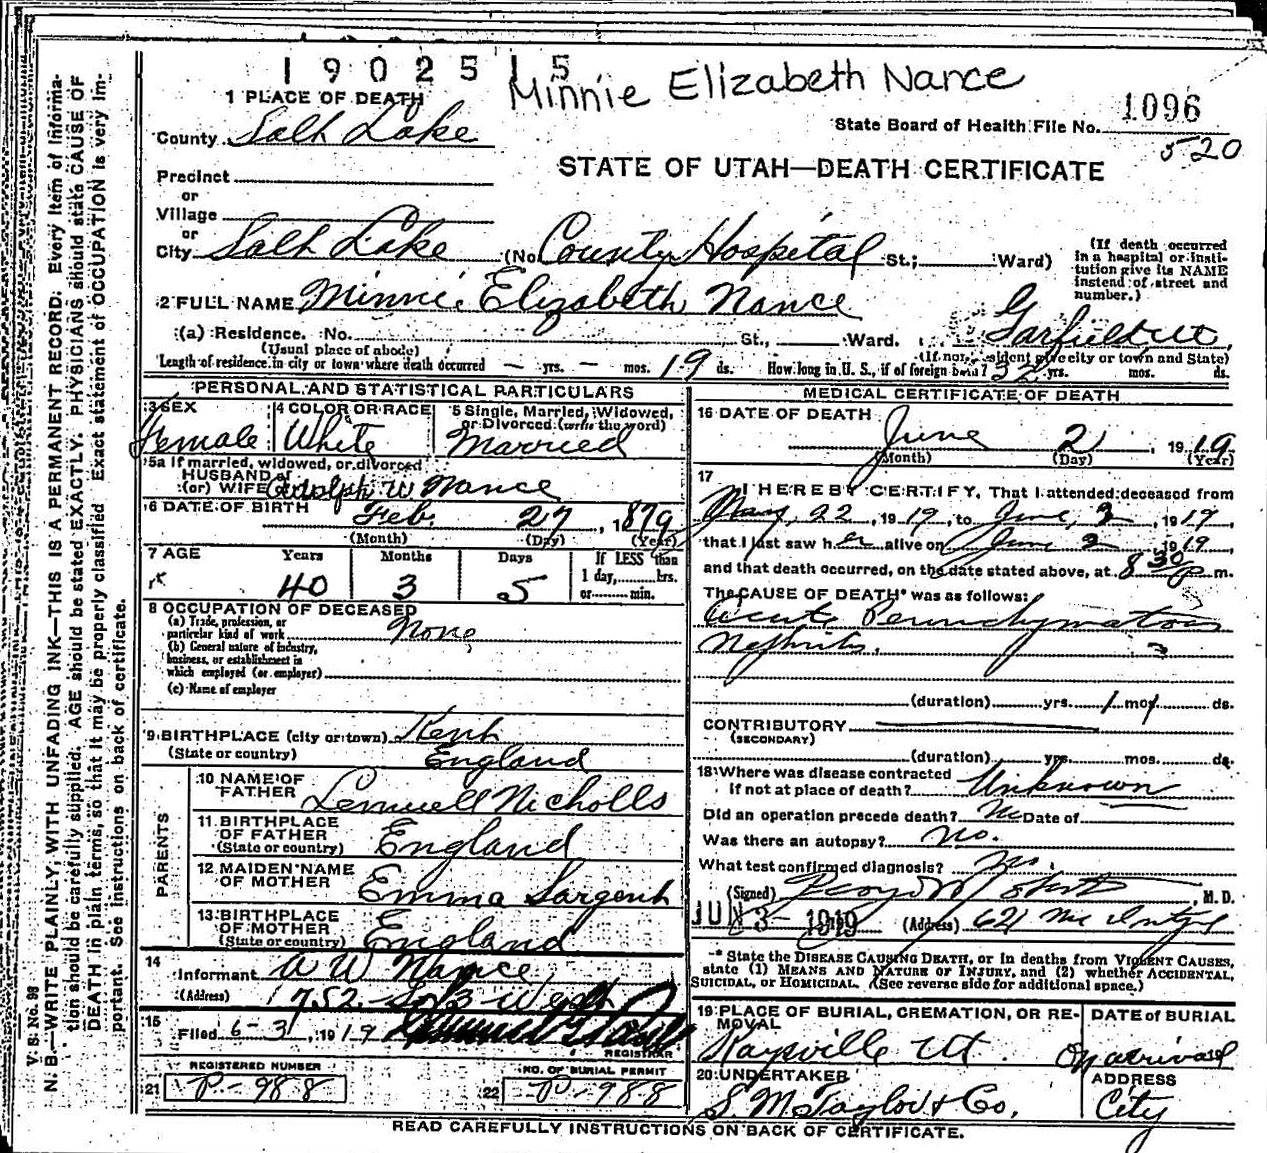 1902515
Minnie Elizabeth Nance
1 PLACE OF DEATH
State Board of Health File No. 1096
County Salt Lake
520
STATE OF UTAH—DEATH CERTIFICATE
Precinct
or
Village
or
City Salt Lake (No County Hospital St.; Ward)
(If death occurred in a hospital or insti-
tution give its NAME
instead of street and
number.)
2 FULL NAME Minnie Elizabeth Nance
(a) Residence. No. St., Ward. Garfield Ut.
(Usual place of abode) (If nonresident give city or town and State)
Length of residence in city or town where death occurred — yrs. — mos. 19 ds. How long in U. S., if of foreign birth? 32 yrs. mos. ds.
PERSONAL AND STATISTICAL PARTICULARS
3 SEX Female
4 COLOR OR RACE White
5 Single, Married, Widowed,
or Divorced (write the word)
Married
5a If married, widowed, or divorced
HUSBAND of
(or) WIFE Adolph W Nance
6 DATE OF BIRTH Feb. 27, 1879
(Month) (Day) (Year)
7 AGE Years Months Days If LESS than
40 3 5 1 day, hrs.
or min.
8 OCCUPATION OF DECEASED
(a) Trade, profession, or
particular kind of work None
(b) General nature of industry,
business, or establishment in
which employed (or employer)
(c) Name of employer
9 BIRTHPLACE (city or town) Kent
(State or country) England
PARENTS
10 NAME OF
FATHER Lemuell Nicholls
11 BIRTHPLACE
OF FATHER
(State or country) England
12 MAIDEN NAME
OF MOTHER Emma Sargent
13 BIRTHPLACE
OF MOTHER
(State or country) England
14
Informant A W Nance
(Address) 752 So 3 West
15
Filed 6-3, 1919
REGISTRAR
REGISTERED NUMBER
21 P-988
NO. OF BURIAL PERMIT
22 P-988
MEDICAL CERTIFICATE OF DEATH
16 DATE OF DEATH
June 2, 1919
(Month) (Day) (Year)
17
I HEREBY CERTIFY, That I attended deceased from
May, 22, 1919, to June, 2, 1919
that I last saw her alive on June 2 1919,
and that death occurred, on the date stated above, at 8 30 p m.
The CAUSE OF DEATH* was as follows:
Acute Parenchymatous
Nephritis.
(duration) yrs. 1 mos ds.
CONTRIBUTORY
(SECONDARY)
(duration) yrs. mos. ds.
18 Where was disease contracted
If not at place of death? Unknown
Did an operation precede death? No Date of
Was there an autopsy? no.
What test confirmed diagnosis? no.
(Signed) M. D.
JUN 3- 1919 (Address) 621
* State the DISEASE CAUSING DEATH, or in deaths from VIOLENT CAUSES,
state (1) MEANS AND NATURE OF INJURY, and (2) whether ACCIDENTAL,
SUICIDAL, or HOMICIDAL. (See reverse side for additional space.)
19 PLACE OF BURIAL, CREMATION, OR RE-
MOVAL
Kaysville Ut.
DATE of BURIAL
On arrival
20 UNDERTAKER
S. M. Taylor & Co.
ADDRESS
City
READ CAREFULLY INSTRUCTIONS ON BACK OF CERTIFICATE.
V. S. No. 98
N. B.—WRITE PLAINLY, WITH UNFADING INK—THIS IS A PERMANENT RECORD: Every item of informa-
tion should be carefully supplied. AGE should be stated EXACTLY. PHYSICIANS should state CAUSE OF
DEATH in plain terms, so that it may be properly classified. Exact statement of OCCUPATION is very im-
portant. See instructions on back of certificate.